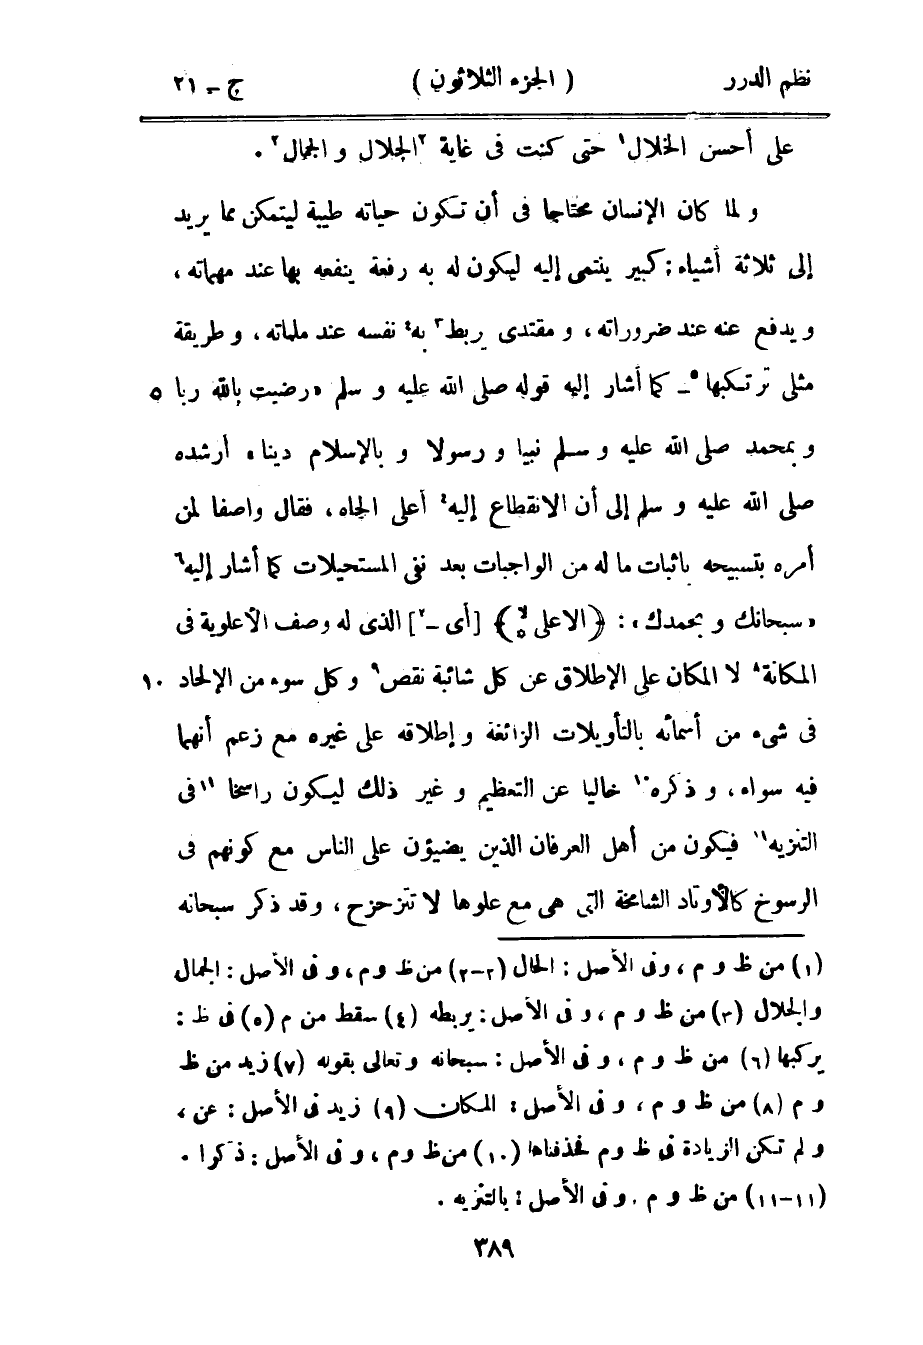 نظم الدرر ( الجزء الثلاثون ) ج ـ ٢١
على أحسن الخلال١ حتى كنت فى غاية ٢الجلال و الجمال٢ .
و لما كان الإنسان محتاجا فى أن تكون حياته طيبة ليتمكن مما يريد
إلى ثلاثة أشياء : كبير ينتمى إليه ليكون له به رفعة ينفعه بها عند مهماته ،
و يدفع عنه عند ضروراته ، و مقتدى ربط٣ به٤ نفسه عند ملماته ، و طريقة
مثلى ترتكبها٥ ـ كما أشار إليه قوله صلى الله عليه و سلم « رضيت بالله ربا ٥
و بمحمد صلى الله عليه و سلم نبيا و رسولا و بالإسلام دينا » أرشده
صلى الله عليه و سلم إلى أن الانقطاع إليه٤ أعلى الجاه ، فقال واصفا لمن
أمره بتسبيحه باثبات ما له من الواجبات بعد نفى المستحيلات كما أشار إليه٦
« سبحانك و بحمدك » : ﴿ الاعلى ۙ٥ ﴾ [ أى ـ٧ ] الذى له وصف الأعلوية فى
المكانة٨ لا المكان على الإطلاق عن كل شائبة نقص٩ و كل سوء من الإلحاد ١٠
فى شىء من أسمائه بالتأويلات الزائغة و إطلاقه على غيره مع زعم أنهما
فيه سواء ، و ذكره١٠ خاليا عن التعظيم و غير ذلك ليكون راسخا ١١فى
التنزيه١١ فيكون من أهل العرفان الذين يضيؤن على الناس مع كونهم فى
الرسوخ كالأوتاد الشامخة التى هى مع علوها لا تتزحزح ، و قد ذكر سبحانه
(١) من ظ و م ، وفى الأصل : الحال (٢-٢) من ظ و م ، و فى الأصل : الجمال
والجلال (٣) من ظ و م ، و فى الأصل : يربطه (٤) سقط من م (٥) فى ظ :
يركبها (٦) من ظ و م ، و فى الأصل : سبحانه و تعالى بقوله (٧) زيد من ظ
و م (٨) من ظ و م ، و فى الأصل : المكان (٩) زيد فى الأصل : عن ،
و لم تكن الزيادة فى ظ و م فحذفناها (١٠) من ظ و م ، و فى الأصل : ذكرا .
(١١-١١) من ظ و م . و فى الأصل : بالتنزيه .
٣٨٩